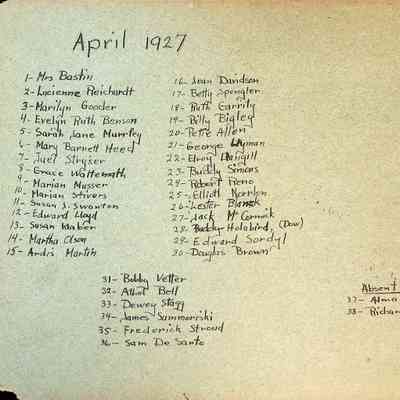 April 1927
1- Mrs Bastin
2- Lucienne Reichardt
3- Marilyn Gooder
4. Evelyn Ruth Benson
5- Sarah Jane Murrley
6- Mary Barnett Heed
7- Juel Stryker
8- Grace
9- Marian Musser
10- Marian Stivers
11- Susan J. Swanton
12- Edward Lloyd
13- Susan
14- Martha Olson
15- André Martin
16- Jean Davidson
17- Betty Spengler
18- Ruth Garrity
19- Billy Bigley
20- Petre Allen
21- George Wyman
22- Elroy
23- Buddy Simons
24- Robert Reno
25- Elliott
26- Lester
27- Jack McCormik
28- Buddy Holabird, (Dow)
29- Edward Sordyl
30- Douglas Brown
31- Bobby Vetter
32- Athol Bell
33- Dewey Stagg
34- James
35- Frederick Stroud
36- Sam De Santo
Absent
37- Alma
38-